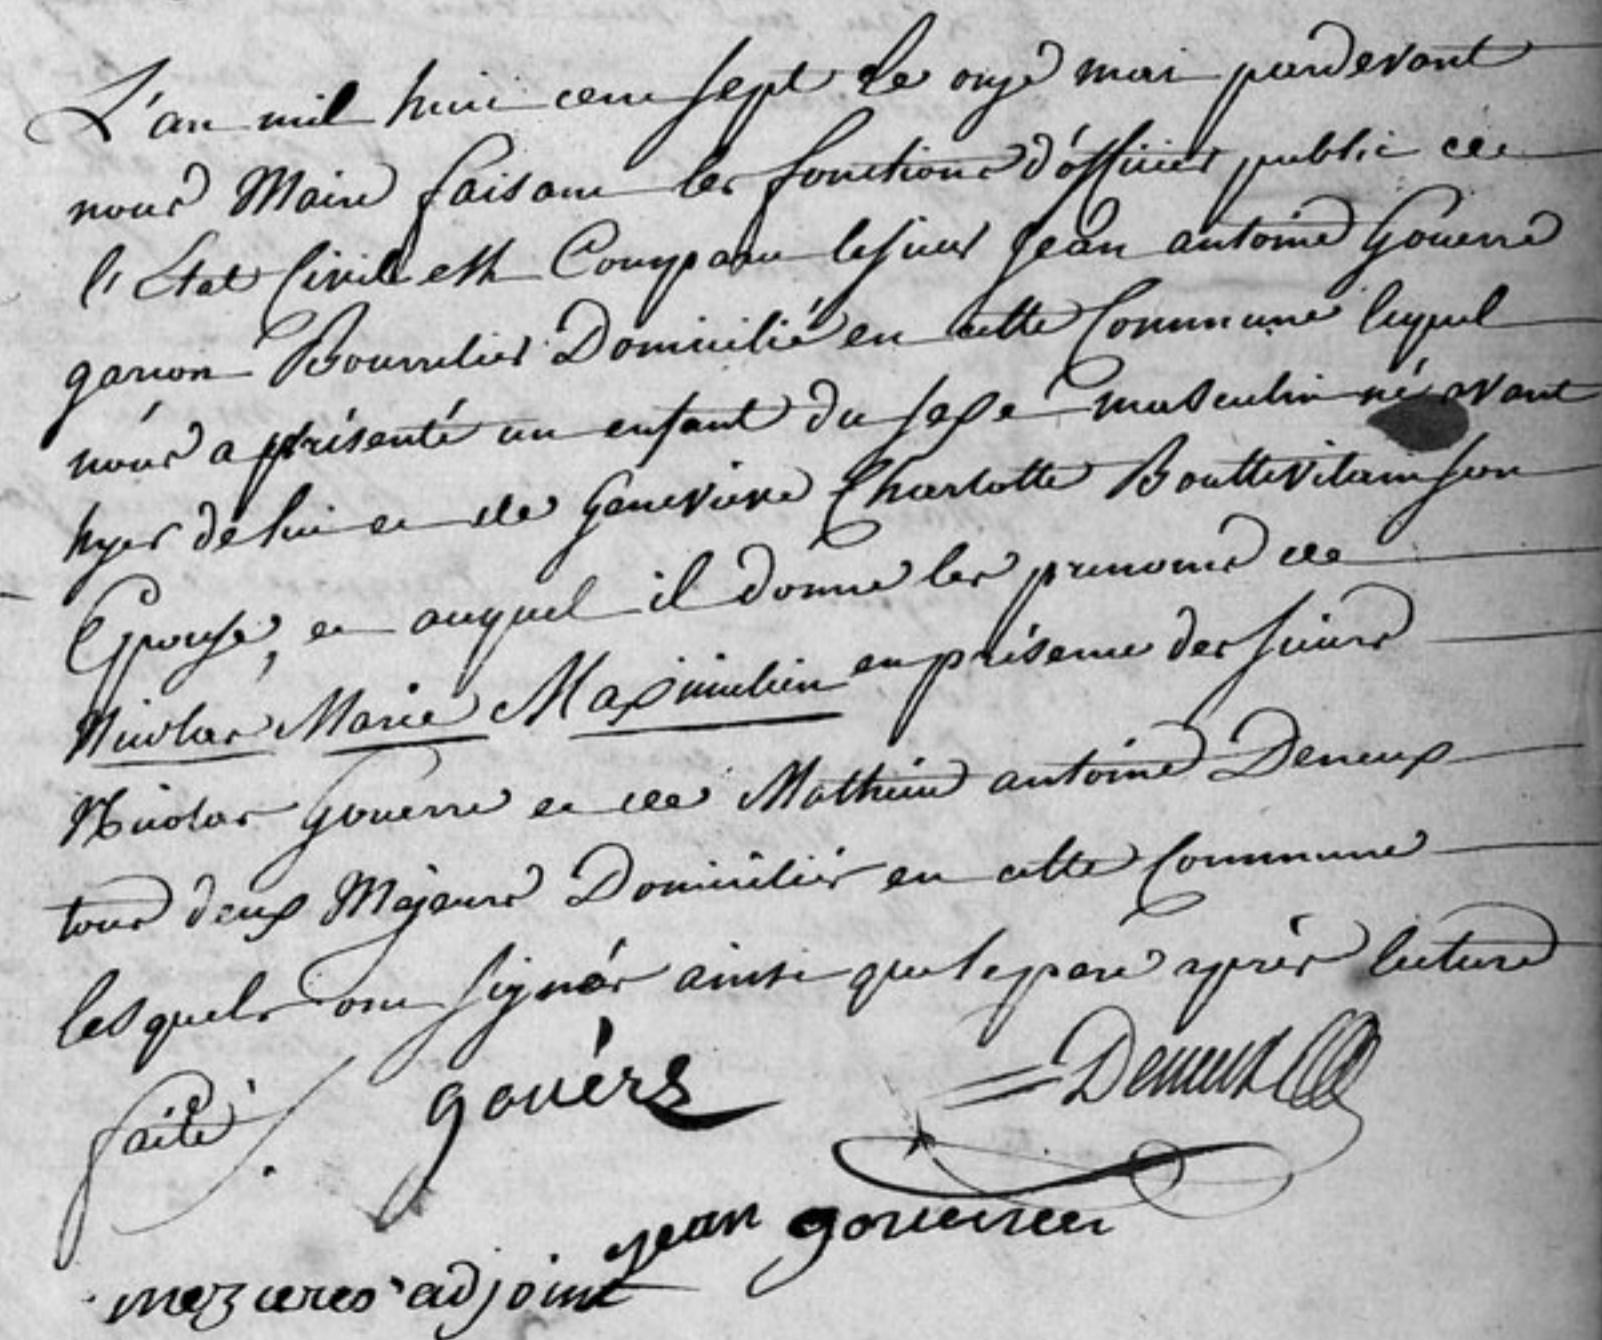 L'an mil huit cent sept le onze mai pardevant
nous Maire faisant les fonctions d'officier public de
l'Etat Civil est Comparu le sieur Jean antoine Gouerre
garcon Bourrelier Domicilié en cette Commune lequel
nous a présenté un enfant du sexe masculin né avant
hyer de lui et de Genevieve Charlotte Bouttevilain son
Epouse, et auquel il donne les prenoms de
Nicolas Marie Maximilien en présence des sieurs
Nicolas Gouerre et de Mathieu antoine Deneux
tous deux Majeurs Domiciliés en cette Commune
lesquels ont signés ainsi que le pere après lecture
faite.
gouére
Deneux
jean gouerree
mezieres adjoint